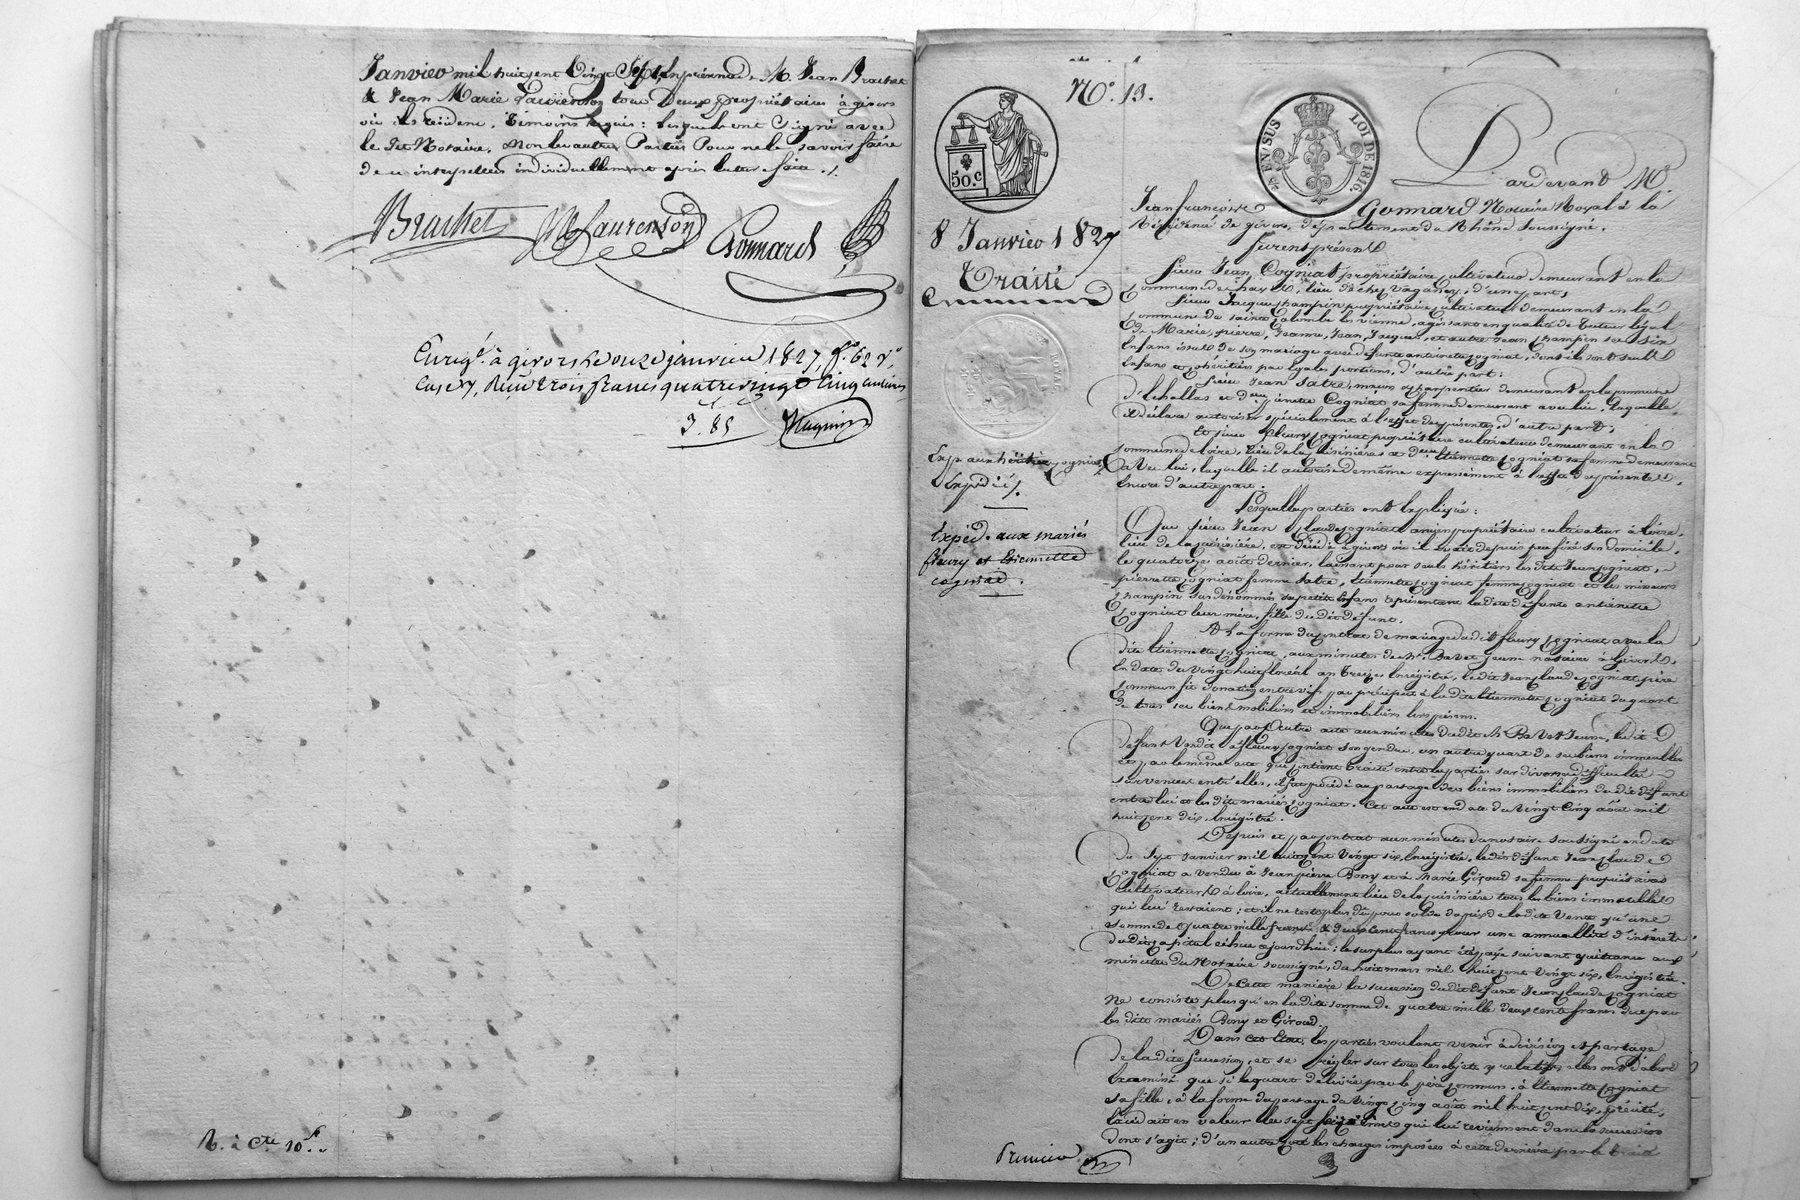 Janvier mil huit cent vingt sept, en présence de M. Jean Brachet
& Jean Marie Laurenson tous deux propriétaires à givors
où ils résident, témoins requis : lesquels ont signé avec
le dit Notaire, non les autres Parties Pour ne le savoir faire
de ce interpellées individuellement après lecture faite ./.
Brachet JM Laurenson Gonnard
Enregt. à givors le onze janvier 1827, fo. 62 vo.
case 7, Reçu trois francs quatre vingt cinq centimes
3. 85
R. à Cte. 10
No. 13.
50 c
EN SUS LOI DE 1816.
8 Janvier 1827
Traité
Expédié ./.
Expéd. aux mariés
fleury et Etiennette
cogniat.
Pardevant Me.
Jean françois Gonnard Notaire Royal à la
Résidence de givors, département du Rhône soussigné.
furent présents
Sieur Jean Cogniat propriétaire cultivateur demeurant en la
commune de lieu de chez vaganay, d'une part,
Sieur Jacques champin propriétaire cultivateur demeurant en la
commune de sainte Colombe les vienne, agissant en qualité de tuteur légal
de Marie, pierre, Jeanne, Jean, Jacques, et autre Jean champin ses six
Enfans issus de son mariage avec défunte antoinette cogniat, dont ils sont seuls
Enfans et cohéritiers par égales portions, d'autre part :
Sieur Jean Satre, maçon charpentier demeurant en la commune
d'Echallas et Pierrette Cogniat sa femme demeurant avec lui, laquelle
il déclare autoriser spécialement à l'effet des présentes, d'autre part,
Et sieur fleury cogniat propriétaire cultivateur demeurant en la
commune de loire, lieu de la et Etiennette cogniat sa femme demeurant
avec lui, laquelle il autorise de même expressément à l'effet des présentes,
Encore d'autre part.
Lesquelles parties ont Expliqué :
Que sieur Jean Claude cogniat ancien propriétaire cultivateur à loire,
lieu de la est décédé à givors où il avait depuis peu fixé son domicile,
le quatorze août dernier, laissant pour seuls héritiers les dits Jean cogniat,
pierrette cogniat femme Satre, Etiennette cogniat femme cogniat et les mineurs
champin sus dénommés ses petits Enfans représentant la dite défunte antoinette
cogniat leur mère, fille du dit défunt.
A la forme du contrat de mariage du dit fleury cogniat avec la
dite Etiennette cogniat, aux minutes de Me. Bavet jeune notaire à givors,
En date du vingt huit floréal an treize Enrégistré, le dit Jean Claude cogniat père
commun fit donation entre vifs par préciput à la dite Etiennette cogniat du quart
de tous ses biens mobiliers et immobiliers lors présens.
Que par autre acte aux minutes du dit Me. Bavet Jeune, le dit
défunt vendit à fleury cogniat son gendre, un autre quart de ses biens immeubles
et par le même acte qui contient traité entre les parties sur diverses difficultés
survenues entr'elles, il fut procédé au partage des biens immobiliers du dit défunt
entre lui et les dits mariés cogniat. Cet acte est en date du vingt cinq août mil
huit cent dix, Enrégistré.
Depuis et par contrat aux minutes du notaire soussigné en date
du Sept Janvier mil huit cent vingt six, Enrégistré, le dit défunt Jean Claude
cogniat a vendu à Jean pierre Bony et à Marie Giroud sa femme propriétaires
cultivateurs à loire, actuellement lieu de la tous les biens immeubles
qui lui restaient ; et il ne reste plus dû pour solde du prix de la dite Vente qu'une
somme de quatre mille francs & deux cent francs pour une annuallité d'intérêts
du dit capital échue aujourd'hui ; le surplus ayant été payé suivant quittance aux
minutes du Notaire soussigné, du huit mars mil huit cent vingt six, Enrégistrée.
De cette manière la succession du dit défunt Jean Claude cogniat
ne consiste plus qu'en la dite somme de quatre mille deux cents francs due par
les dits mariés Bony et Giroud.
Dans cet état, les parties voulant venir à division et partage
de la dite succession, et se régler sur tous les objets y relatifs, elles ont d'abord
Examiné que si le quart délivré par le père commun à Etiennette cogniat
sa fille, à la forme du partage du vingt cinq août mil huit cent dix, précité,
dont s'agit ; d'un autre côté les charges imposées à cette dernière par le traité
Premier